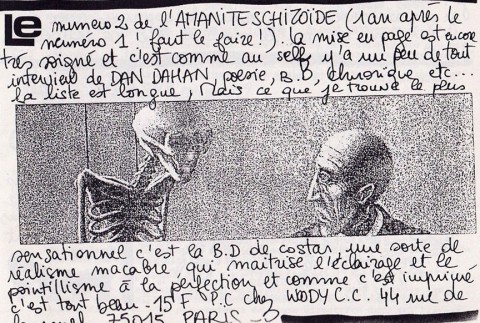 Le numero 2 de l'AMANITE SCHIZOÏDE (1 an après le
numéro 1 ! faut le faire !) la mise en page est encore
très soigné et c'est comme au self y'a un peu de tout
interview de DAN DAHAN, poesie, B.D, chronique etc...
la liste est longue, Mais ce que je trouve le plus
sensationnel c'est la B.D de costar, une sorte de
réalisme macabre qui maitrise l'éclairage et le
pointillisme à la perfection et comme c'est imprimé
c'est tout beau - 15F P.C chez WODY C.C. 44 rue de
75015 PARIS